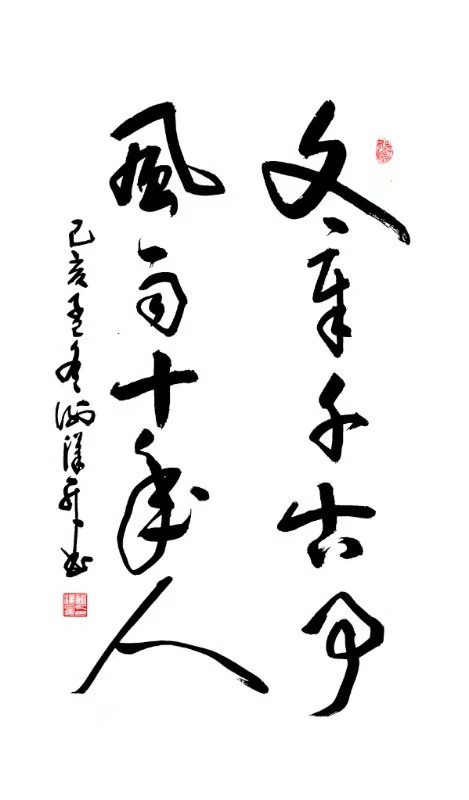 文章千古事
風雨十年人
己亥孟冬書